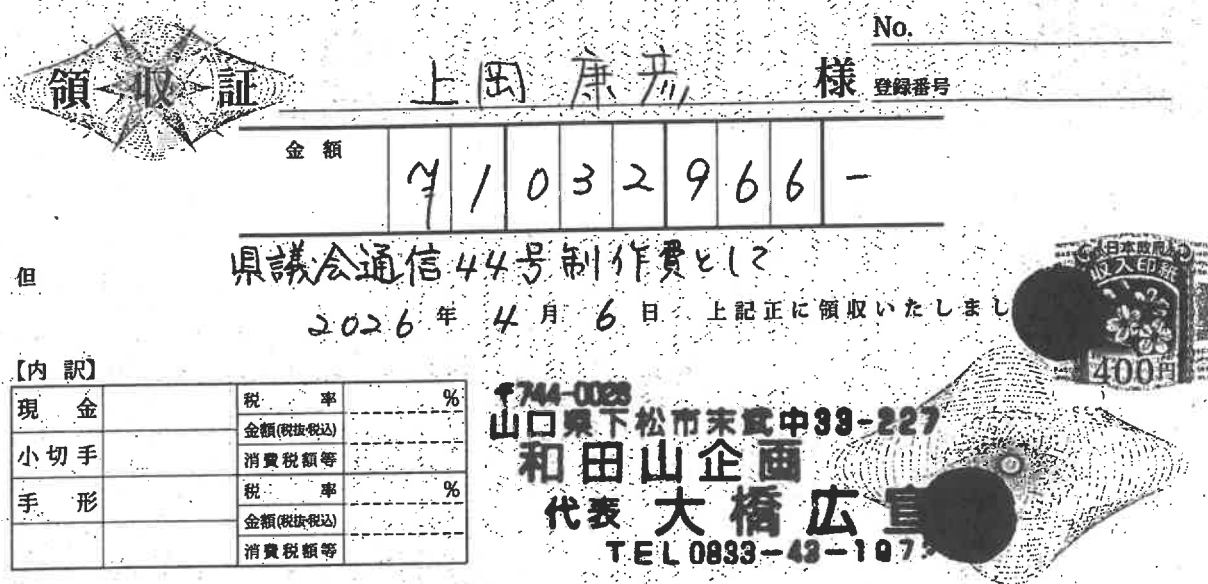 領収証
上岡 康彦 様
No.
登録番号
金額 ¥1032966-
但 県議会通信44号制作費として
2026年 4月 6日 上記正に領収いたしまし
日本政府
収入印紙
400円
【内 訳】
現 金
小切手
手 形
税 率 %
金額(税抜・税込)
消費税額等
税 率 %
金額(税抜・税込)
消費税額等
〒744-0028
山口県下松市末武中33-227
和田山企画
代表 大橋広宣
TEL 0833-43-197